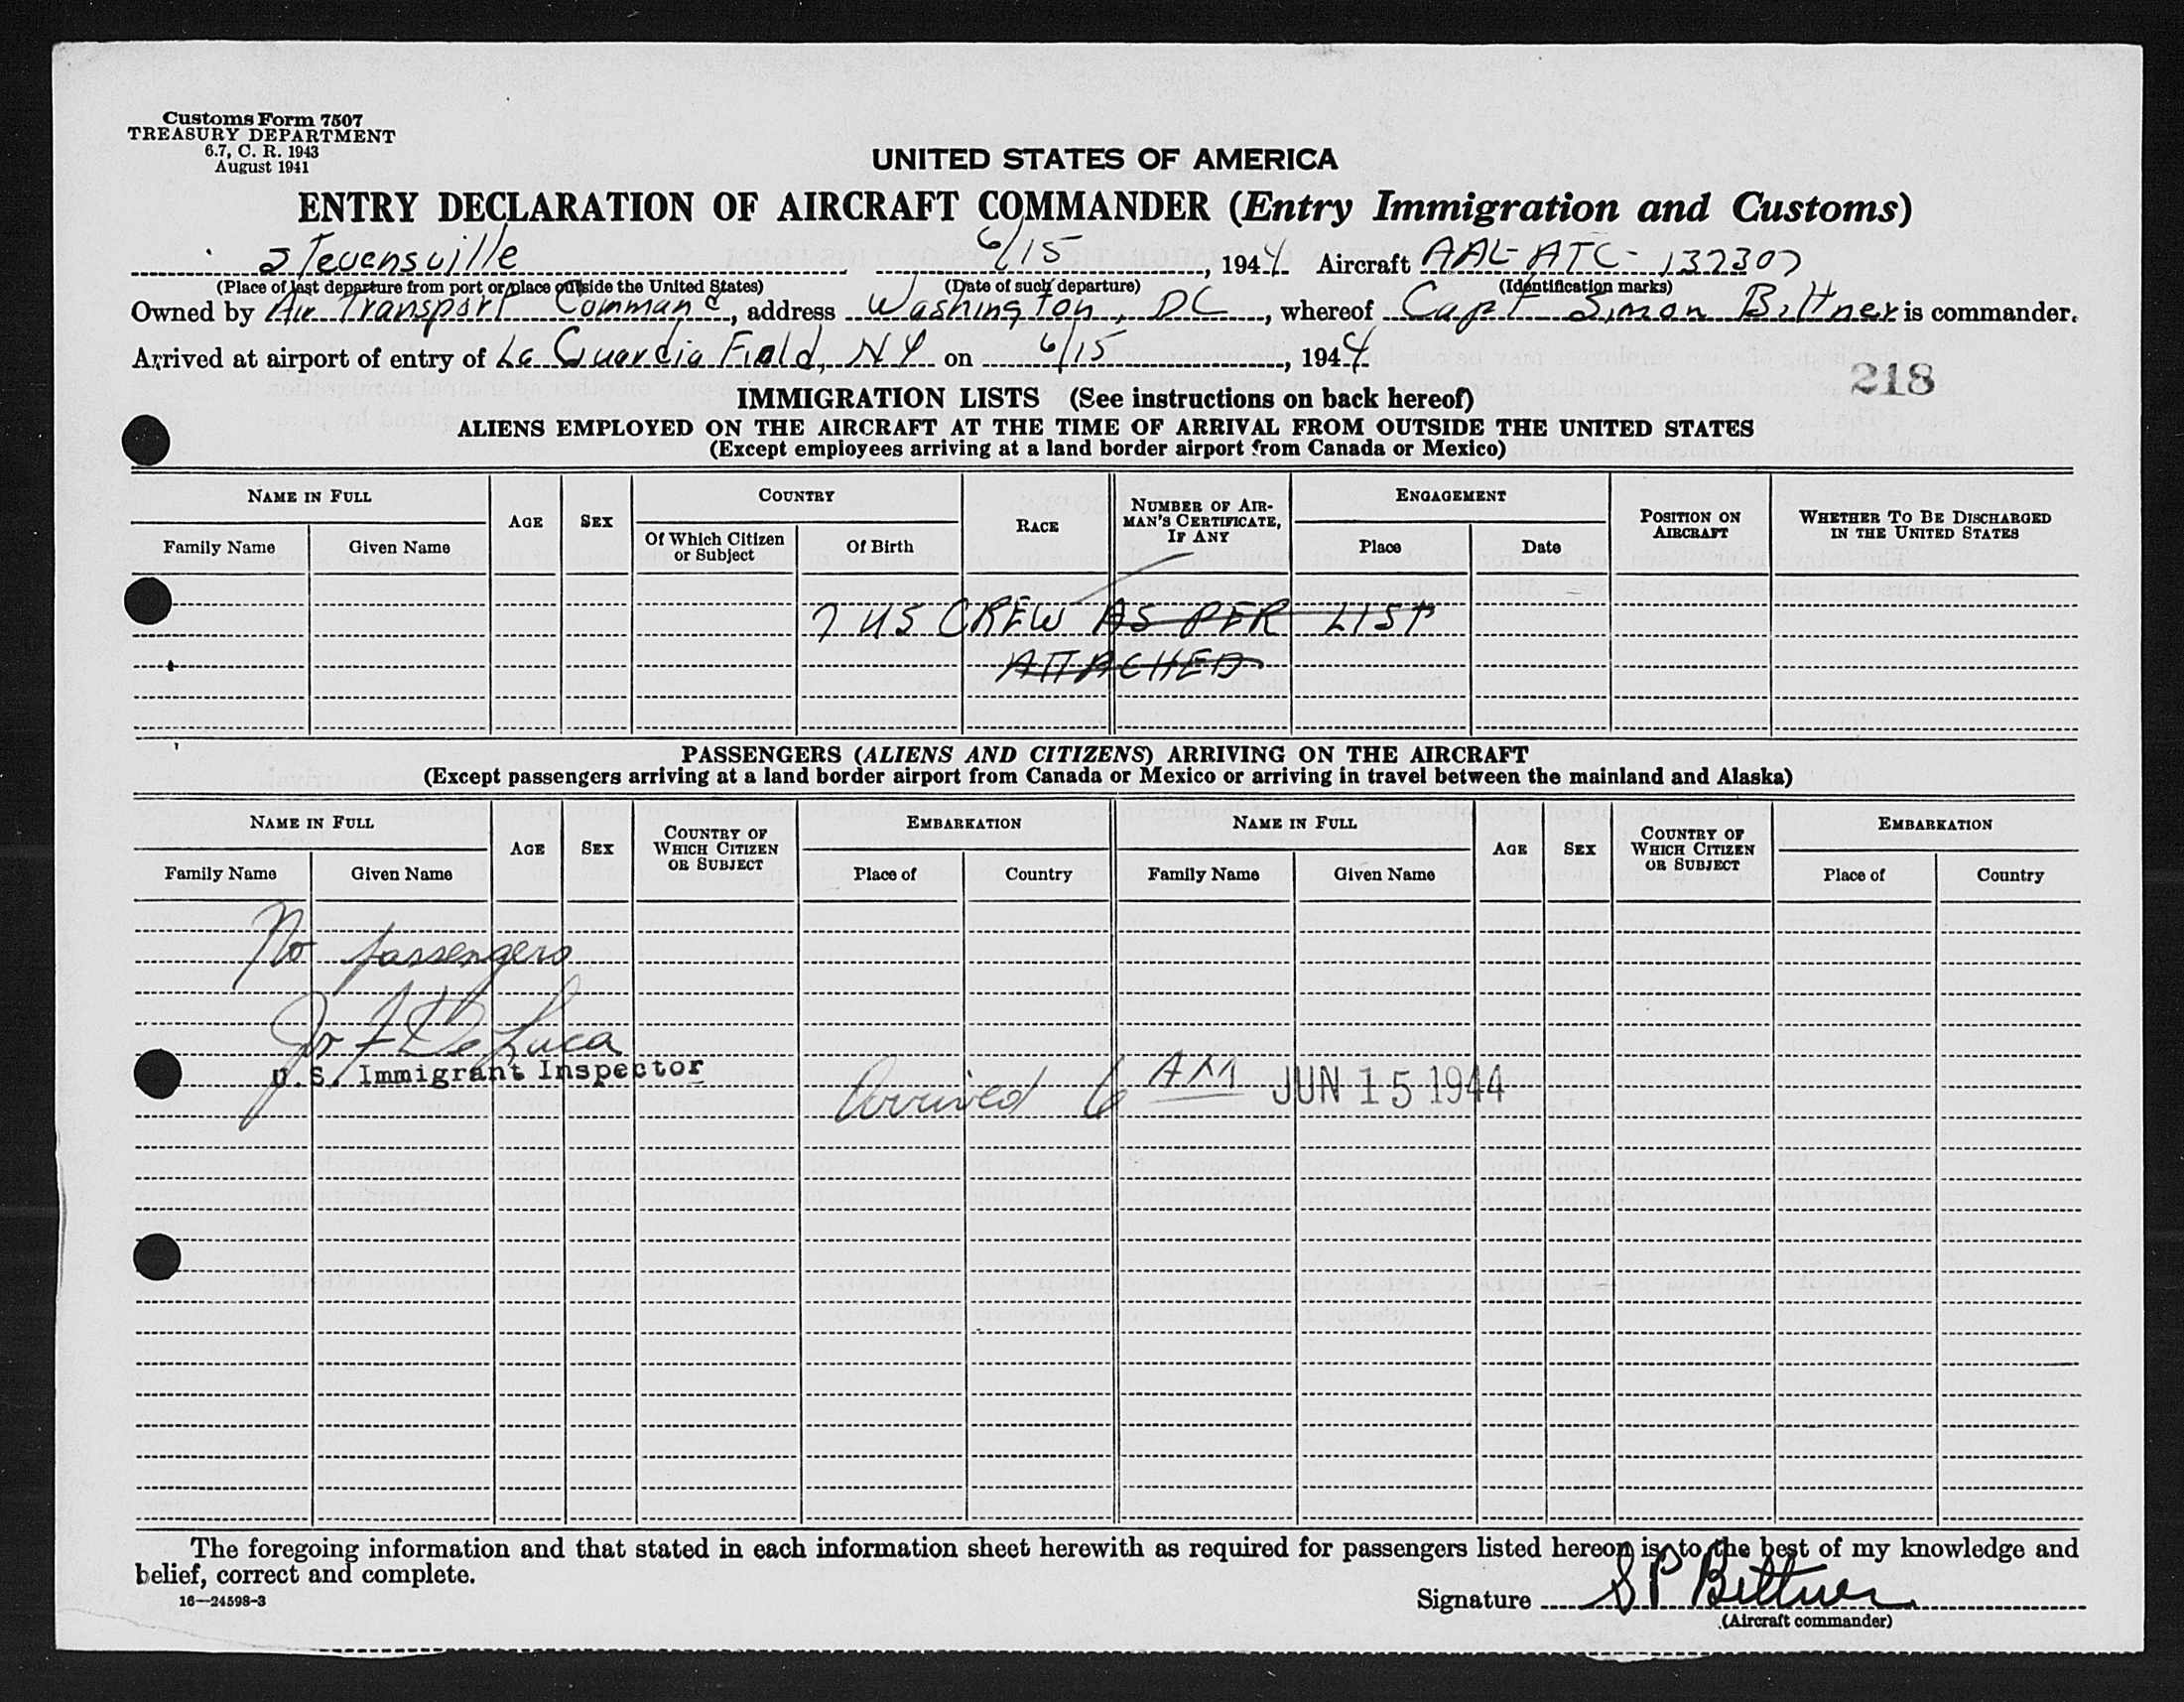 Customs Form 7507
TREASURY DEPARTMENT
6.7, C. R. 1943
August 1941
UNITED STATES OF AMERICA
ENTRY DECLARATION OF AIRCRAFT COMMANDER (Entry Immigration and Customs)
Stevensville 6/15, 1944 Aircraft AAL-ATC-137307
(Place of last departure from port or place outside the United States) (Date of such departure) (Identification marks)
Owned by Air Transport Command, address Washington, DC, whereof Capt Simon Bittner is commander.
Arrived at airport of entry of La Guardia Field, NY on 6/15, 1944
218
IMMIGRATION LISTS (See instructions on back hereof)
ALIENS EMPLOYED ON THE AIRCRAFT AT THE TIME OF ARRIVAL FROM OUTSIDE THE UNITED STATES
(Except employees arriving at a land border airport from Canada or Mexico)
NAME IN FULL AGE SEX COUNTRY RACE NUMBER OF AIR-MAN'S CERTIFICATE, IF ANY ENGAGEMENT POSITION ON AIRCRAFT WHETHER TO BE DISCHARGED IN THE UNITED STATES
Family Name Given Name Of Which Citizen or Subject Of Birth Place Date
7 US CREW AS PER LIST
ATTACHED
PASSENGERS (ALIENS AND CITIZENS) ARRIVING ON THE AIRCRAFT
(Except passengers arriving at a land border airport from Canada or Mexico or arriving in travel between the mainland and Alaska)
NAME IN FULL AGE SEX COUNTRY OF WHICH CITIZEN OR SUBJECT EMBARKATION NAME IN FULL AGE SEX COUNTRY OF WHICH CITIZEN OR SUBJECT EMBARKATION
Family Name Given Name Place of Country Family Name Given Name Place of Country
No passengers
De Luca
U.S. Immigrant Inspector
Arrived 6 AM JUN 15 1944
The foregoing information and that stated in each information sheet herewith as required for passengers listed hereon is, to the best of my knowledge and
belief, correct and complete.
16—24598-3
Signature S P Bittner
(Aircraft commander)